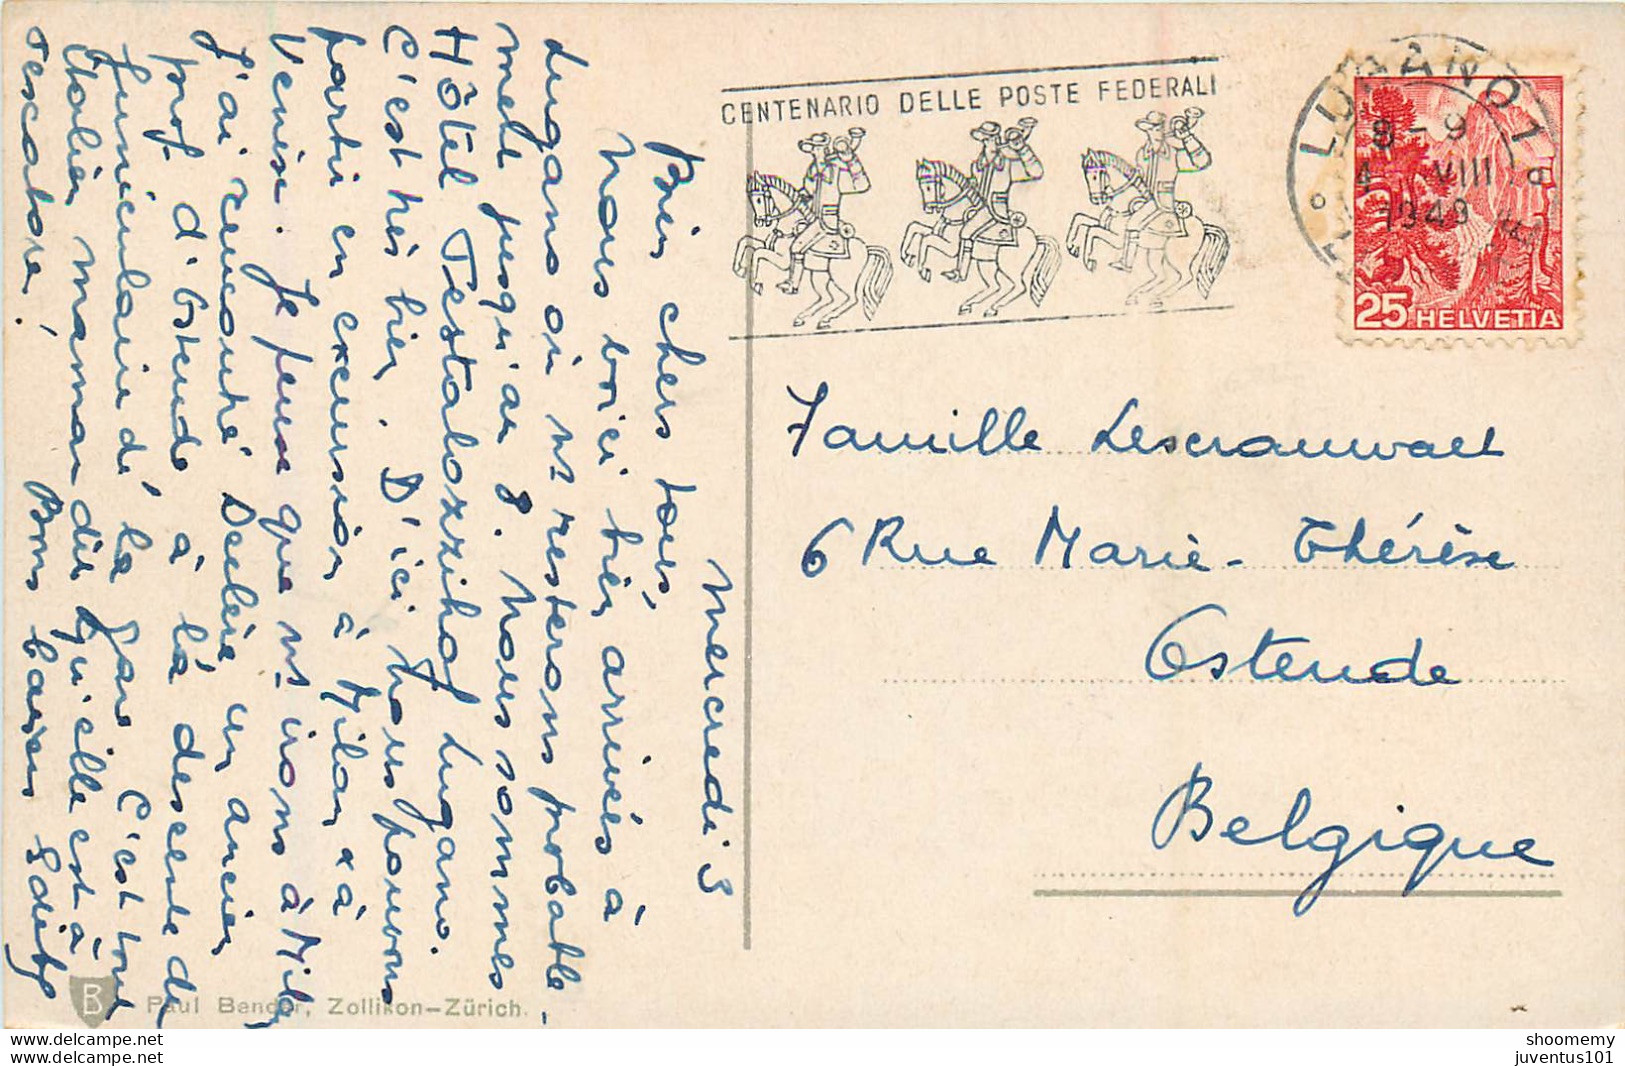 CENTENARIO DELLE POSTE FEDERALI
LUGANO 1
8-9
4 VIII
1949
25 HELVETIA
Mercredi 3
Bien chers tous,
Nous voici bien arrivés à
Lugano où ns resterons probable-
ment jusqu'au 8. Nous sommes
Hôtel Pestalozzihof Lugano.
C'est très bien. D'ici nous pouvons
partir en excursion à Milan & à
Venise. Je pense que ns irons à Milan
J'ai rencontré Declère un ancien
prof d'Ostende à la descente du
funiculaire de la gare. C'est tout
Italien maman dit qu'elle est à
Pescatore! Bons baisers Edith
Famille Lescrauwaet
6 Rue Marie-Thérèse
Ostende
Belgique
B Paul Bender, Zollikon-Zürich.
shoomemy
juventus101